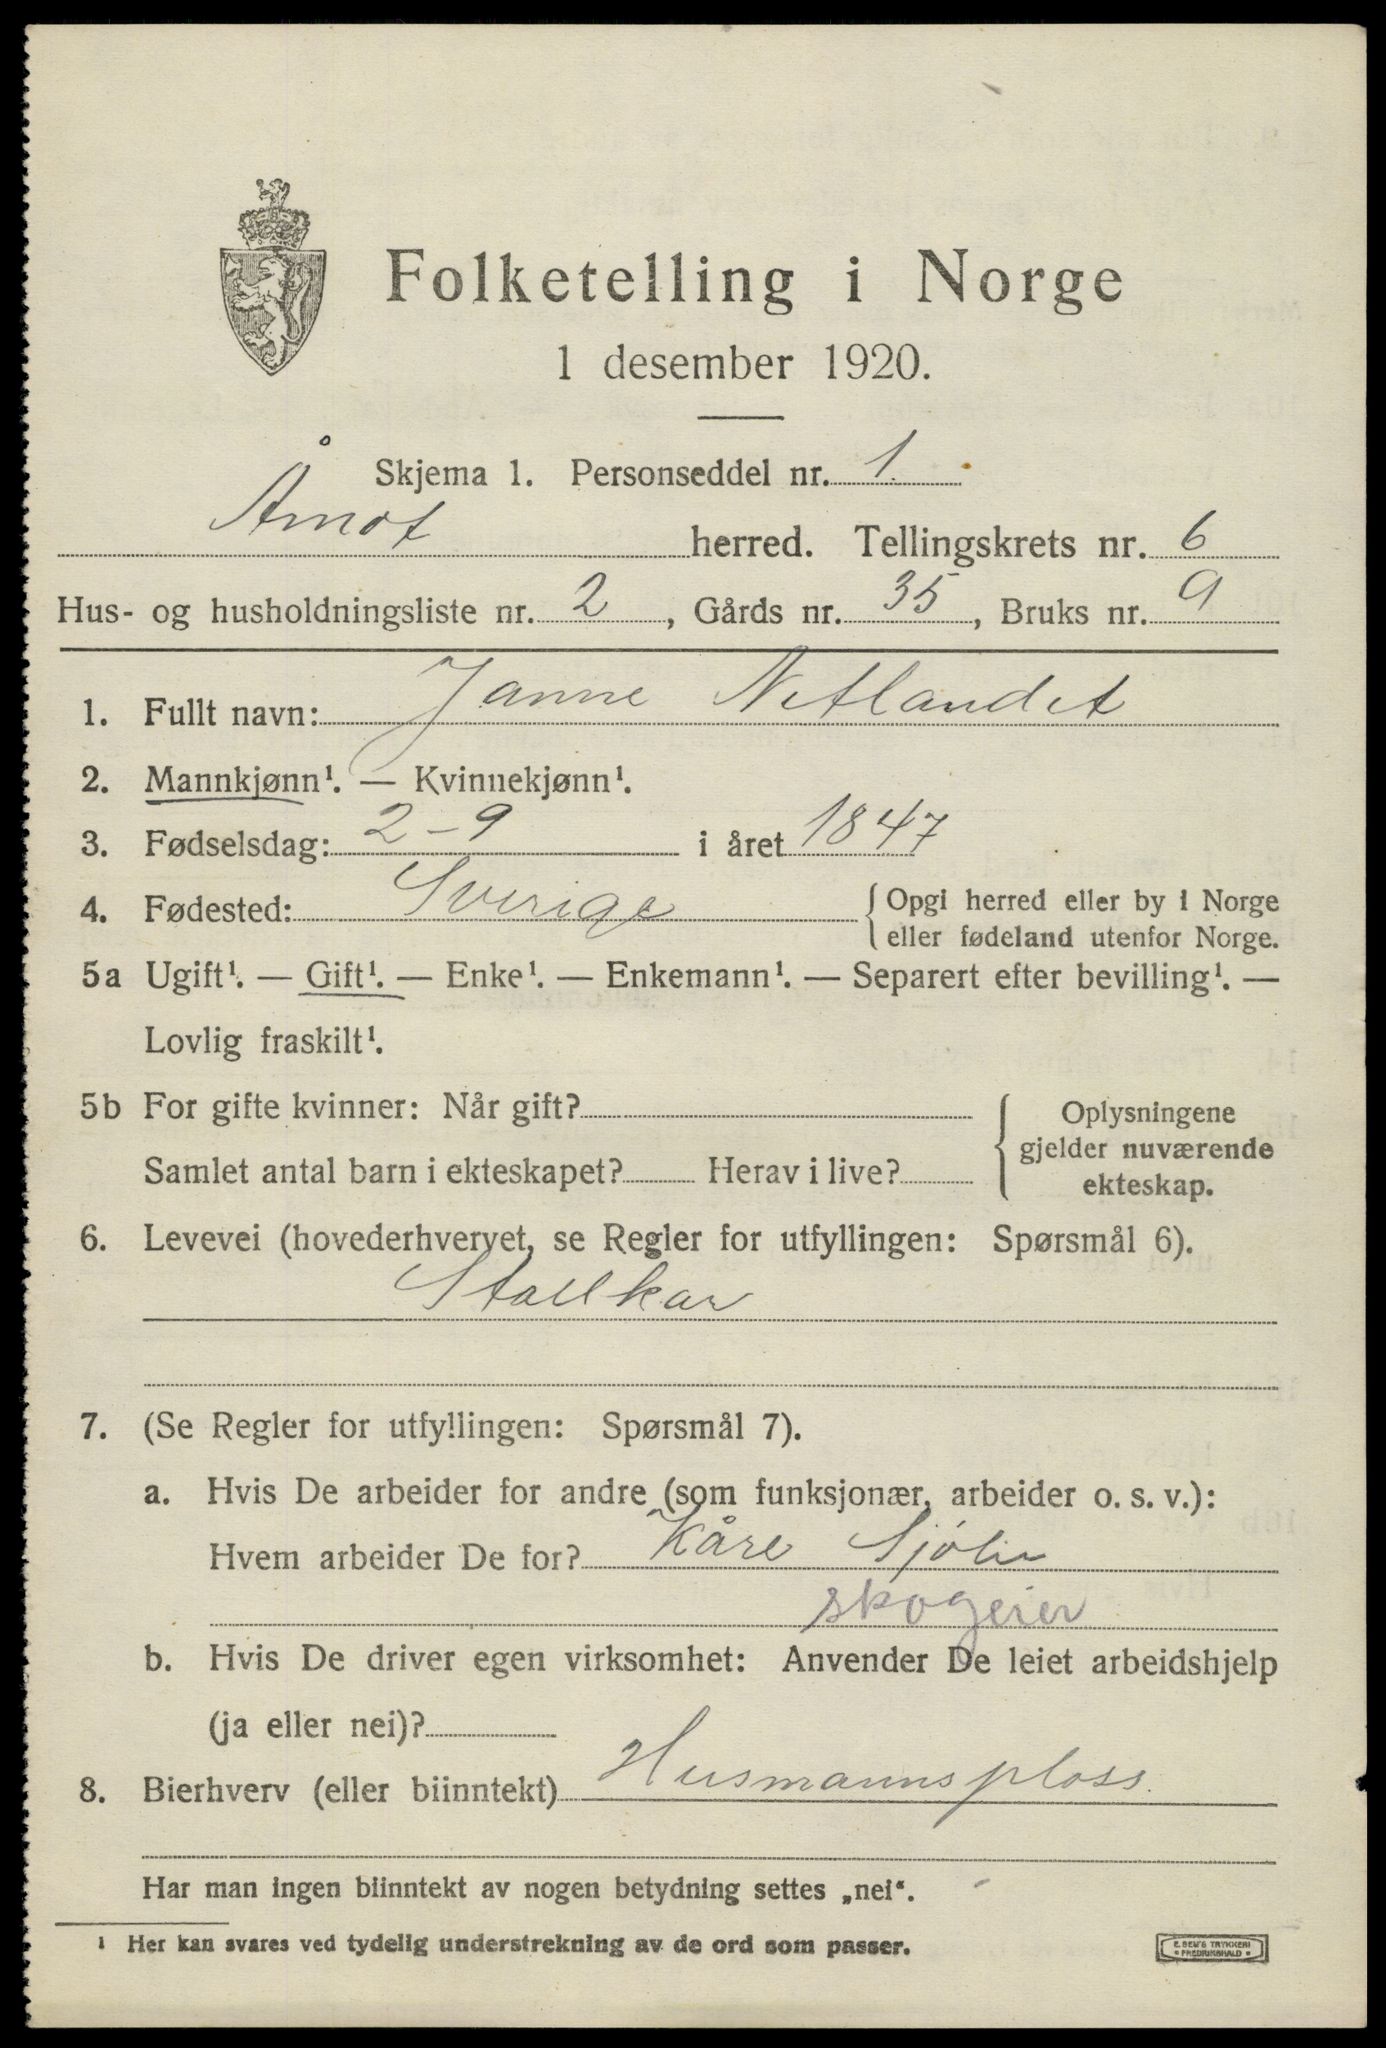 Folketelling i Norge
1 desember 1920.
Skjema 1. Personseddel nr. 1.
Åmot herred. Tellingskrets nr. 6
Hus- og husholdningsliste nr. 2, Gårds nr. 35, Bruks nr. 9
1. Fullt navn: Janne Netlandet
2. Mannkjønn¹. — Kvinnekjønn¹.
3. Fødselsdag: 2-9 i året 1847
4. Fødested: Sverige { Opgi herred eller by i Norge
eller fødeland utenfor Norge.
5a Ugift¹. — Gift¹. — Enke¹. — Enkemann¹. — Separert efter bevilling¹. —
Lovlig fraskilt¹.
5b For gifte kvinner: Når gift? { Oplysningene
gjelder nuværende
Samlet antal barn i ekteskapet? Herav i live? ekteskap.
6. Levevei (hovederhvervet, se Regler for utfyllingen: Spørsmål 6).
Stallkar
7. (Se Regler for utfyllingen: Spørsmål 7).
a. Hvis De arbeider for andre (som funksjonær, arbeider o. s. v.):
Hvem arbeider De for? Kåre Sjøli
skogeier
b. Hvis De driver egen virksomhet: Anvender De leiet arbeidshjelp
(ja eller nei)?
8. Bierhverv (eller biinntekt) Husmannsplass.
Har man ingen biinntekt av nogen betydning settes „nei“.
¹ Her kan svares ved tydelig understrekning av de ord som passer.
E. SEM'S TRYKKERI
FREDRIKSHALD